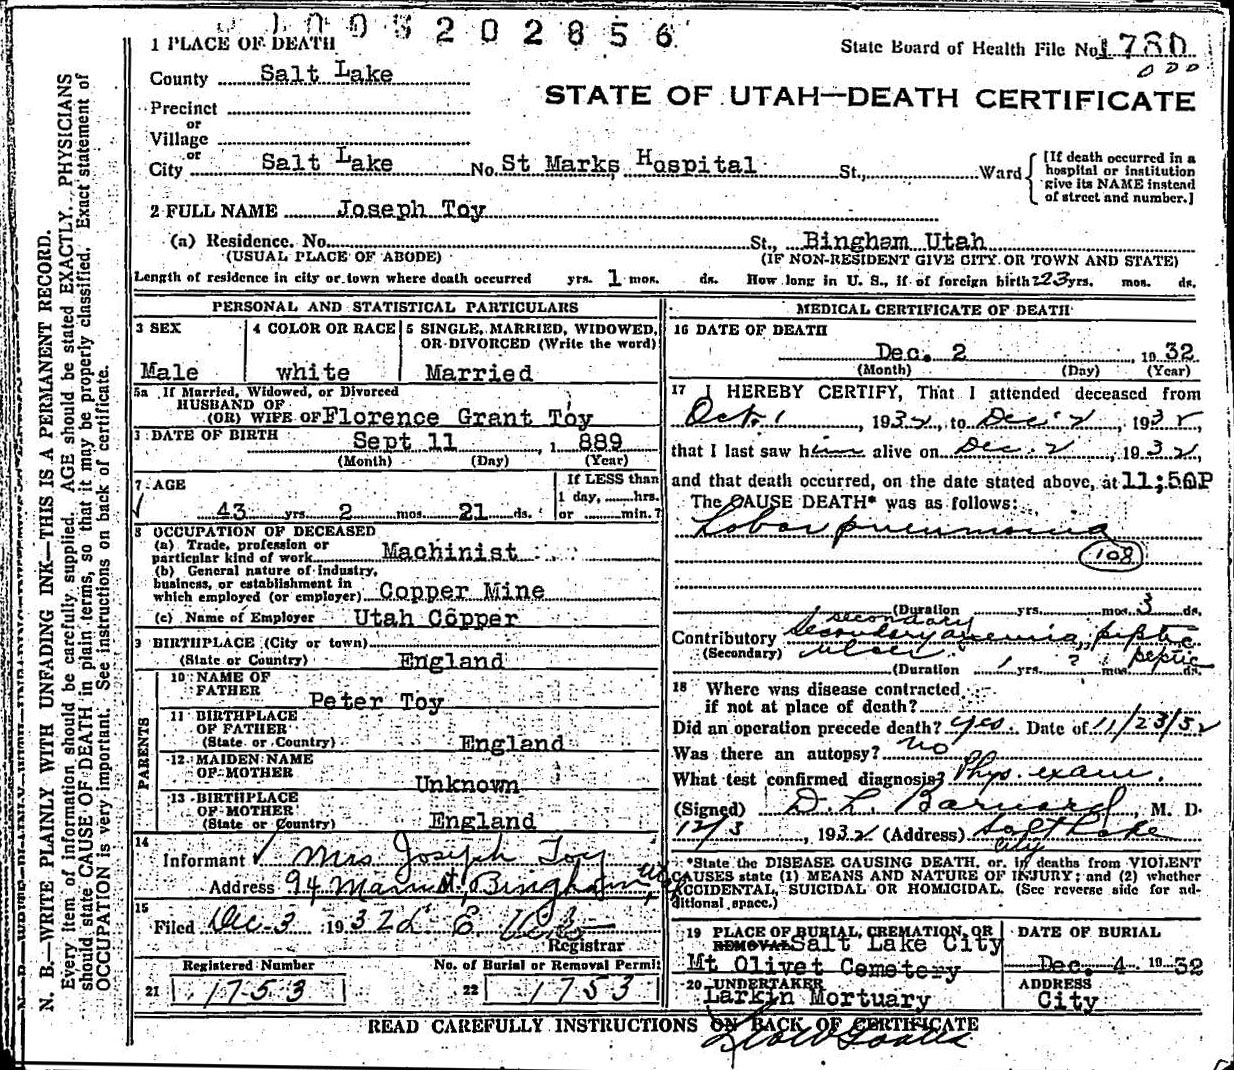 1003202856
1 PLACE OF DEATH
State Board of Health File No. 1780
County Salt Lake
STATE OF UTAH—DEATH CERTIFICATE
Precinct
or
Village
or
City Salt Lake No. St Marks Hospital St., Ward
[If death occurred in a hospital or institution give its NAME instead of street and number.]
2 FULL NAME Joseph Toy
(a) Residence. No. St., Bingham Utah
(USUAL PLACE OF ABODE) (IF NON-RESIDENT GIVE CITY OR TOWN AND STATE)
Length of residence in city or town where death occurred yrs. 1 mos. ds. How long in U. S., if of foreign birth? 23 yrs. mos. ds.
PERSONAL AND STATISTICAL PARTICULARS
3 SEX
Male
4 COLOR OR RACE
white
5 SINGLE, MARRIED, WIDOWED, OR DIVORCED (Write the word)
Married
5a If Married, Widowed, or Divorced
HUSBAND OF
(OR) WIFE OF Florence Grant Toy
DATE OF BIRTH
Sept 11, 1889
(Month) (Day) (Year)
7 AGE
43 yrs. 2 mos. 21 ds.
If LESS than
1 day, hrs.
or min.?
8 OCCUPATION OF DECEASED
(a) Trade, profession or
particular kind of work Machinist
(b) General nature of industry,
business, or establishment in
which employed (or employer) Copper Mine
(c) Name of Employer Utah Copper
9 BIRTHPLACE (City or town)
(State or Country) England
PARENTS
10 NAME OF
FATHER Peter Toy
11 BIRTHPLACE
OF FATHER
(State or Country) England
12 MAIDEN NAME
OF MOTHER Unknown
13 BIRTHPLACE
OF MOTHER
(State or Country) England
14
Informant Mrs Joseph Toy
Address 94 Main st, Bingham, Utah
15
Filed Dec-3 1932
Registrar
Registered Number
21 1753
No. of Burial or Removal Permit
22 1753
MEDICAL CERTIFICATE OF DEATH
16 DATE OF DEATH
Dec. 2, 1932
(Month) (Day) (Year)
17 I HEREBY CERTIFY, That I attended deceased from
Oct. 1, 1932, to Dec. 2, 1932,
that I last saw him alive on Dec. 2, 1932,
and that death occurred, on the date stated above, at 11;50P
The CAUSE DEATH* was as follows:
Lobar pneumonia
108
(Duration yrs. mos. 3 ds.
secondary
Contributory Secondary anemia, peptic
(Secondary) ulcer " peptic
(Duration 1 yrs. ? mos. ds.
18 Where was disease contracted
if not at place of death?
Did an operation precede death? yes. Date of 11/23/32
Was there an autopsy? no
What test confirmed diagnosis? Phys. exam.
(Signed) D. L. Barnard, M. D.
12/3, 1932 (Address) Salt Lake
City
*State the DISEASE CAUSING DEATH, or, in deaths from VIOLENT
CAUSES state (1) MEANS AND NATURE OF INJURY; and (2) whether
ACCIDENTAL, SUICIDAL OR HOMICIDAL. (See reverse side for additional space.)
19 PLACE OF BURIAL, CREMATION, OR
REMOVAL Salt Lake City
Mt Olivet Cemetery
DATE OF BURIAL
Dec. 4 1932
20 UNDERTAKER
Larkin Mortuary
ADDRESS
City
READ CAREFULLY INSTRUCTIONS ON BACK OF CERTIFICATE
N. B.—WRITE PLAINLY WITH UNFADING INK—THIS IS A PERMANENT RECORD.
Every item of information should be carefully supplied. AGE should be stated EXACTLY. PHYSICIANS
should state CAUSE OF DEATH in plain terms, so that it may be properly classified. Exact statement of
OCCUPATION is very important. See instructions on back of certificate.